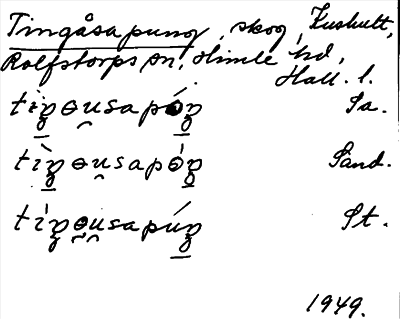 Tingåsapung, skog, Kushult,
Rolfstorps sn, Himle hd,
Hall. l.
tìŋɵu̯sapóŋ Sa.
tìŋɵu̯sapɵ́ŋ Sand.
tìŋɵu̯sapúŋ St.
1949.